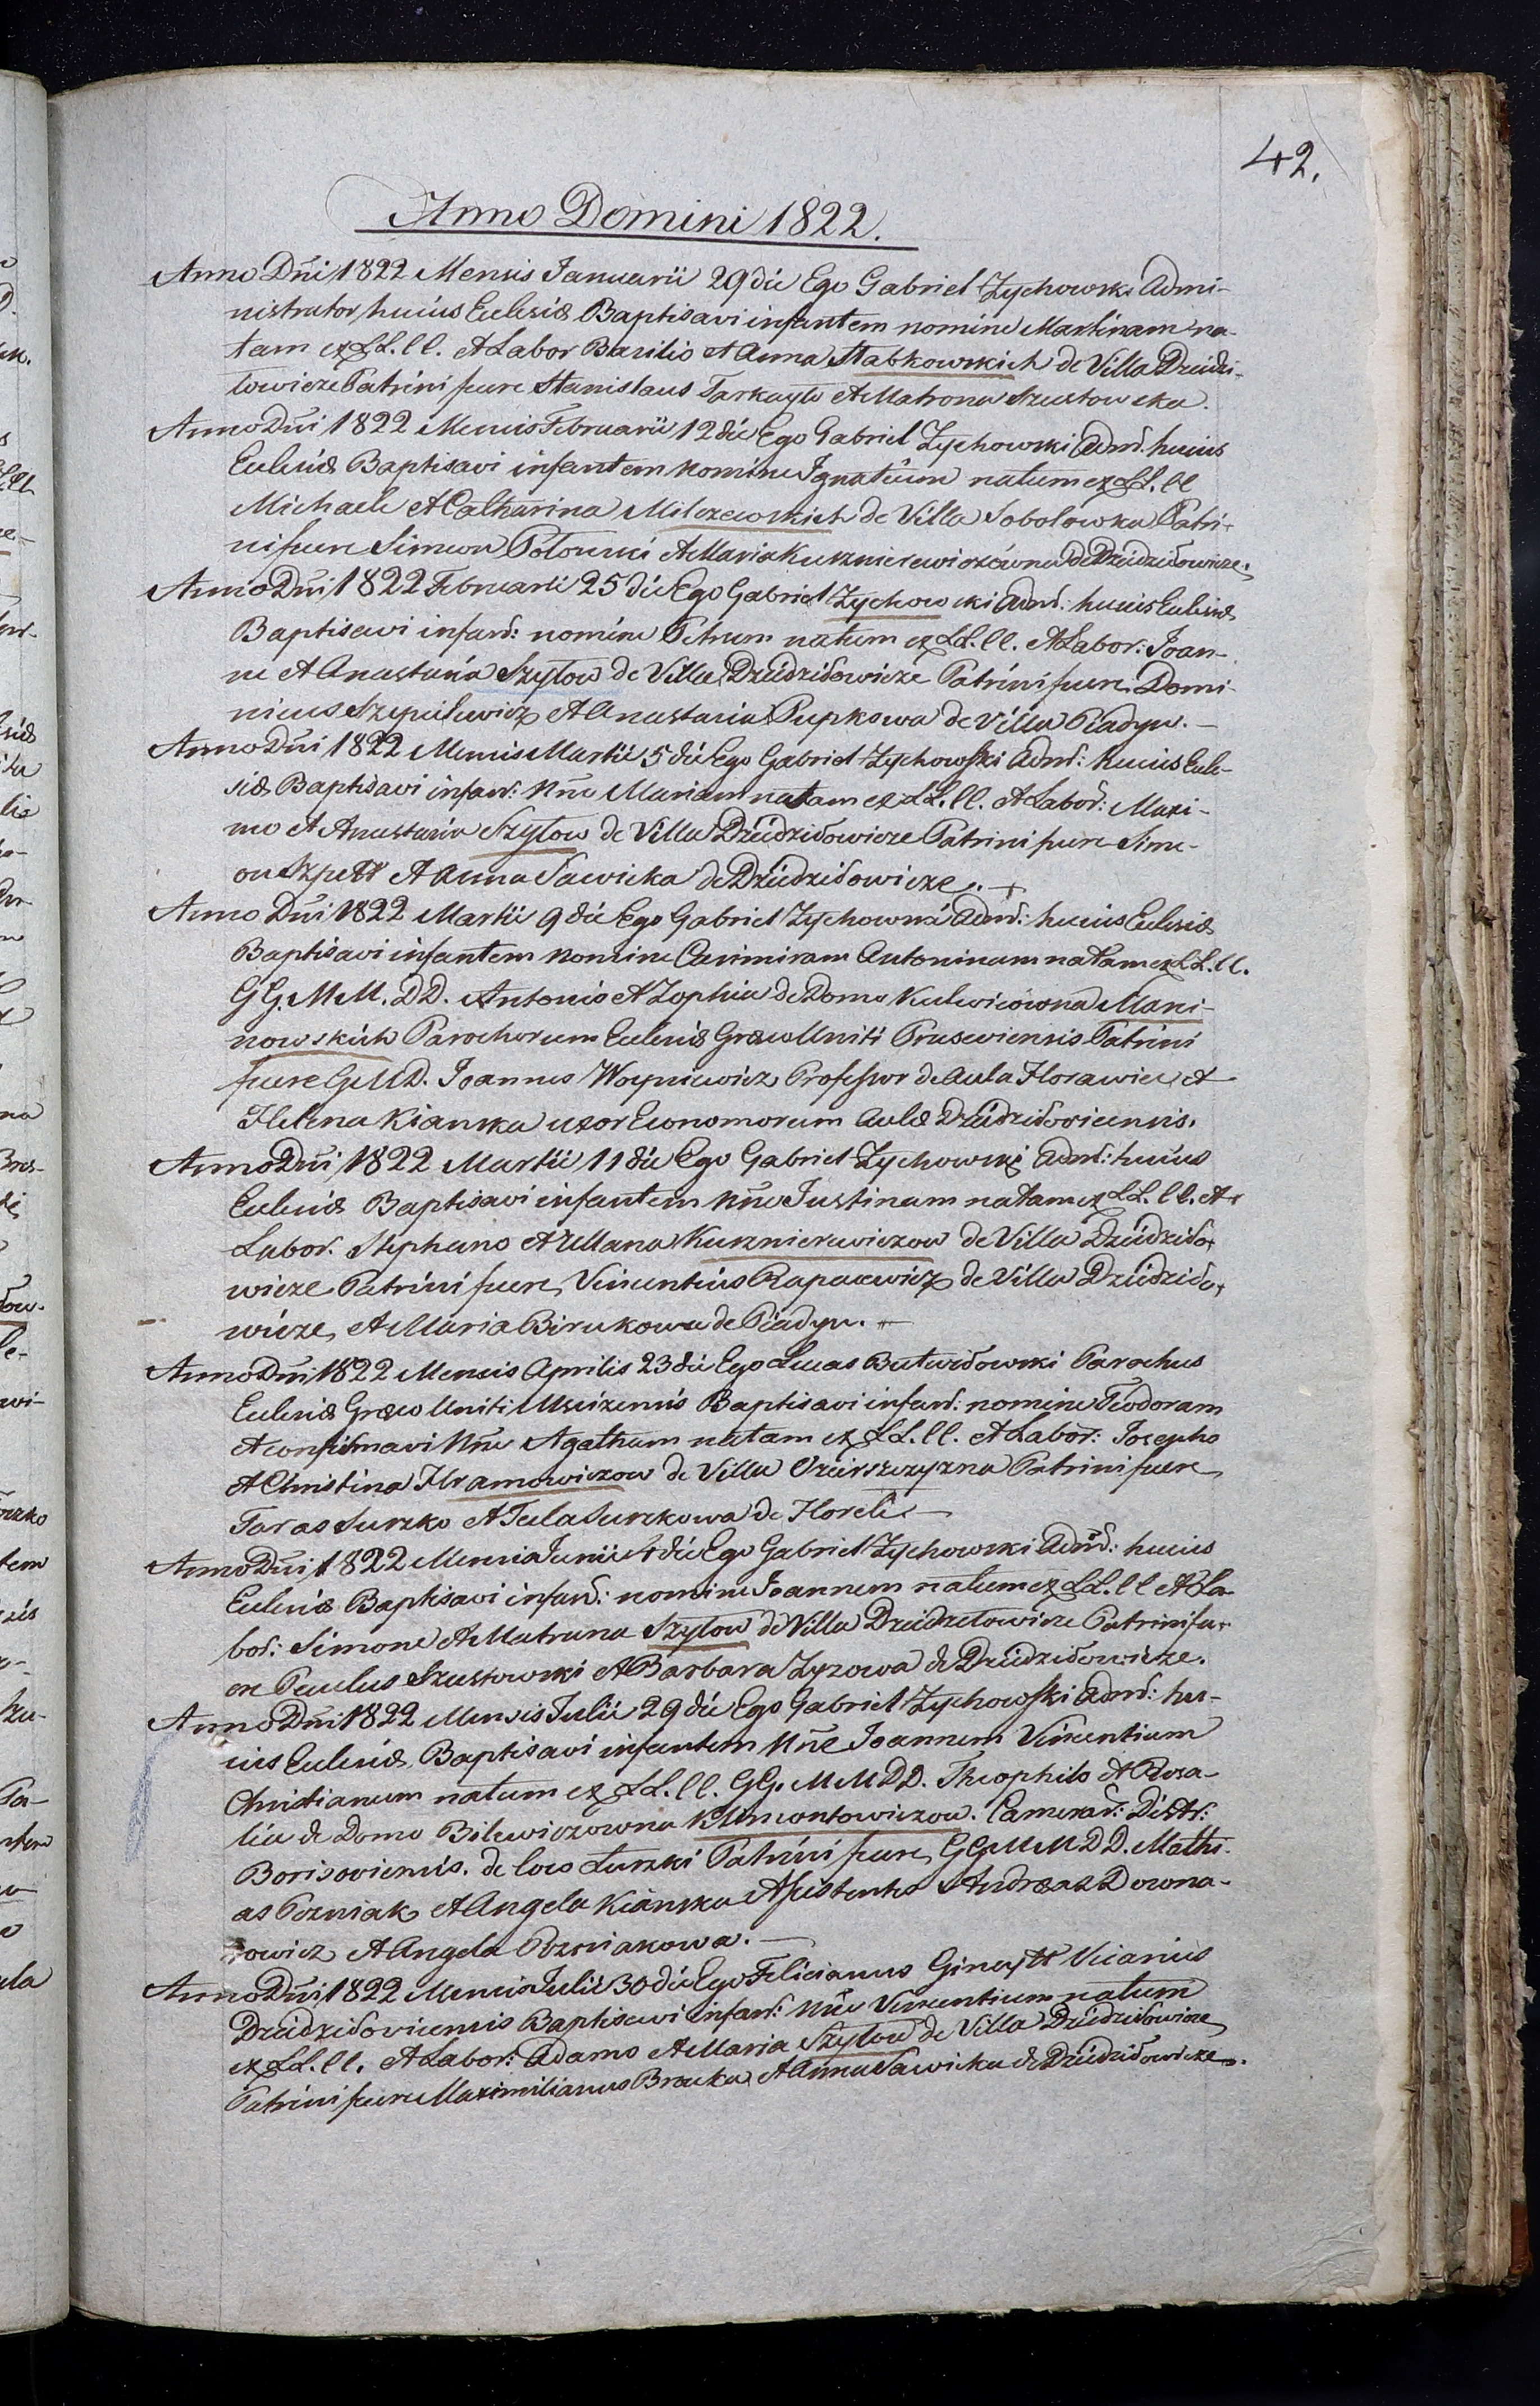 42.
Anno Domini 1822.
Anno Dñi 1822 Mensis Januarii 29 die Ego Gabriel Zychowski Admi-
nistrator huius Eclesiæ Baptisavi infantem nomine Martinam na-
tam ex LL. ll. et Labor Basilio et Anna Stabkowskich de Villa Dziedzi-
łowicze Patrini fuere Stanislaus Tarkayło et Matrona Szustowska.
Anno Dñi 1822 Mensis Februarii 12 die Ego Gabriel Zychowski Admr. huius
Eclesiæ Baptisavi infantem nomine Ignatium natum ex LL. ll
Michaele et Catharina Milczewskich de Villa Sobolowka Patri-
ni fuere Simeon Potocki et Maria Kusznierewiczówna de Dziedziłowicze.
Anno Dñi 1822 Februarii 25 die Ego Gabriel Zychowski Admr: huius Eclesiæ
Baptisavi infant: nomine Petrum natum ex LL. ll. et Labor: Joan-
ne et Anastasia Szyłow de Villa Dziedziłowicze Patrini fuere Domi-
nicus Szepielewicz et Anastasia Pupkowa de Villa Piadyn. —
Anno Dñi 1822 Mensis Martii 5 die Ego Gabriel Zychowski Admr: huius Ecle-
siæ Baptisavi infan: nñe Mariam natam ex LL. ll. et Labor: Maxi-
mo et Anastasia Szyłow de Villa Dziedziłowicze Patrini fuere Sime-
on Szpett et Anna Sawicka de Dziedziłowicze. +
Anno Dñi 1822 Martii 9 die Ego Gabriel Zychowski Admr: huius Eclesiæ
Baptisavi infantem nomine Casimiram Antoninam natam ex LL. ll.
GG. MM. DD. Antonio et Zophia de Domo Kulwicówna Maxi-
nowskich Parochorum Eclesiæ Græco Uniti Prusewiensis Patrini
fuere GMD. Joannes Woyniewicz Professor de Aula Horawiec et
Helena Kianska uxor Economorum Aulæ Dziedziłoviciensis.
Anno Dñi 1822 Martii 11 die Ego Gabriel Zychowski Admr: huius
Eclesiæ Baptisavi infantem nñe Justinam natam ex LL. ll. et
Labor. Stephano et Ullana Kusznierewiczow de Villa Dziedziło-
wicze Patrini fuere Vincentius Rapacewicz de Villa Dziedziło-
wicze, et Maria Birukowa de Piadyn. —
Anno Dñi 1822 Mensis Aprilis 23 die Ego Lucas Butwiłowski Parochus
Eclesiæ Græco Uniti Mscizensis Baptisavi infant: nomine Teodoram
et confirmavi nñe Agatham natam ex LL. ll. et Labor: Josepho
et Christina Hramowiczow de Villa Ozierszczyzna Patrini fuere
Taras Surzko et Tecla Surzkowa de Horeli —
Anno Dñi 1822 Mensis Junii 4 die Ego Gabriel Zychowski Admr: huius
Eclesiæ Baptisavi infant: nomine Joannem natum ex LL. ll et La-
bor: Simone et Matruna Szyłow de Villa Dziedziełowicze Patrini fu-
ere Paulus Szustowski et Barbara Zyzowa de Dziedziłowicze.
Anno Dñi 1822 Mensis Julii 29 die Ego Gabriel Zychowski Admr: hu-
ius Eclesiæ Baptisavi infantem nñe Joannem Vincentium
Christianum natum ex LL. ll. GG. MM DD. Theophilo et Rosa-
lia de Domo Bilewiczowna Klimontowiczow. Camerar: Distr:
Borisoviensis. de loco Łuzki Patrini fuere GG MM DD. Mathi-
as Pozniak et Angela Kianska Assistentes Andreas Downa-
rowicz et Angela Pozniakowa. —
Anno Dñi 1822 Mensis Julii 30 die Ego Felicianus Ginaytt Vicarius
Dziedziłoviciensis Baptisavi infant: nñe Vincentium natum
ex LL. ll. et Labor: Adamo et Maria Szyłow de Villa Dziedziłowicze
Patrini fuere Maximilianus Braska et Anna Sawicka de Dziedziłowicze.